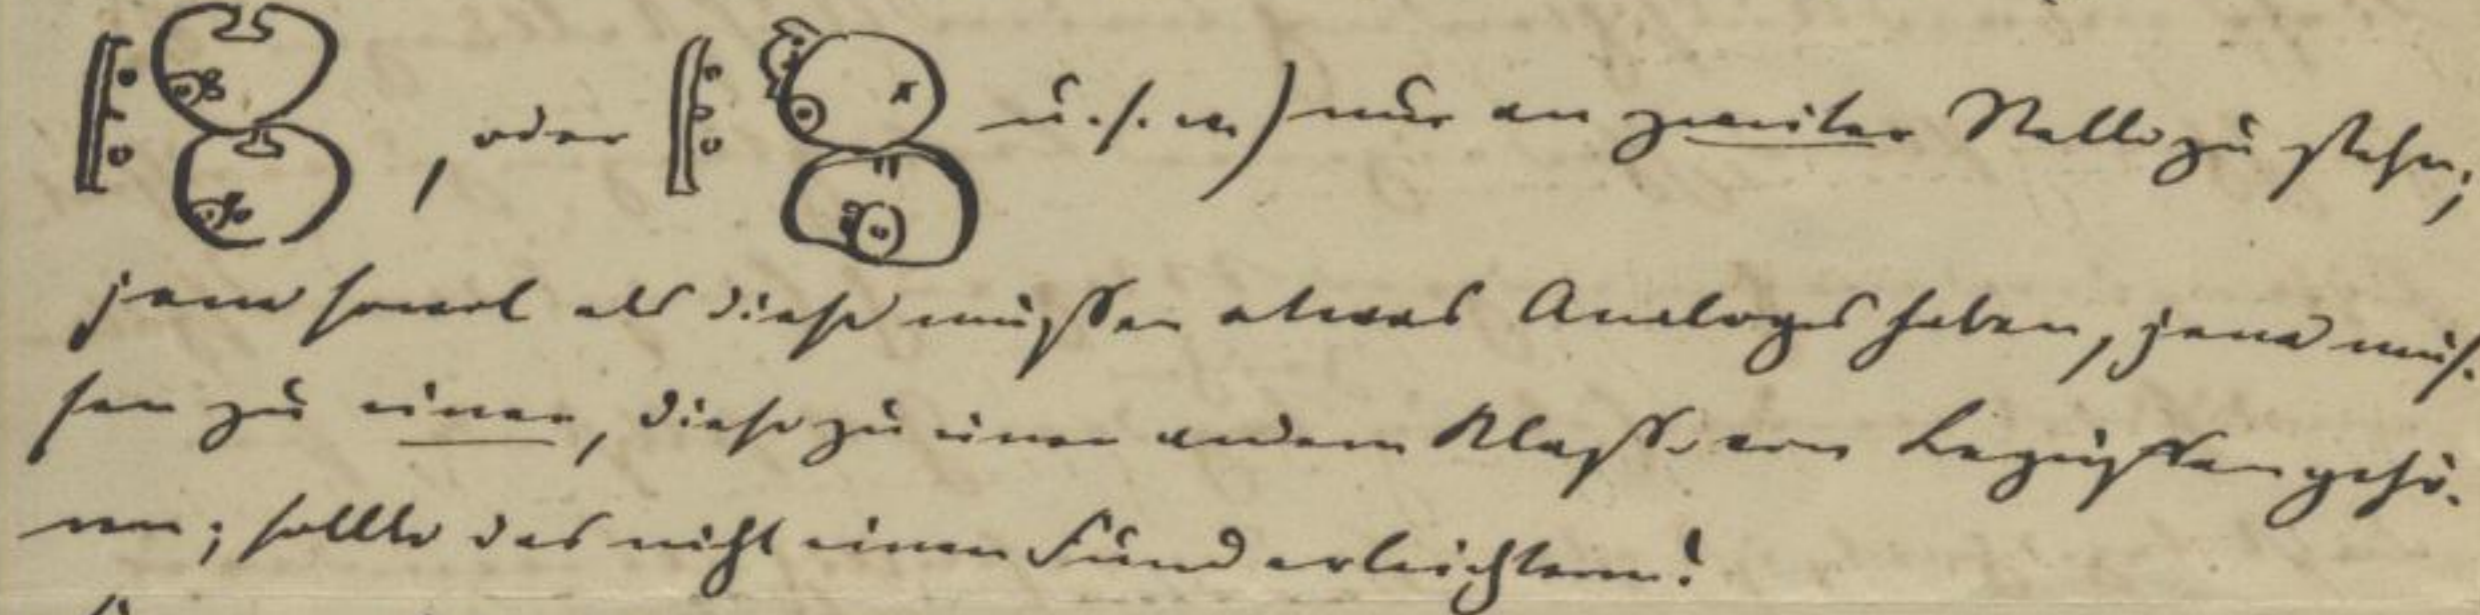 , oder u. s. w.) nur an zweiter Stelle zu stehn;
jene sowol als diese müssen etwas Analoges haben, jene müs-
sen zu einer, diese zu einer andern Klasse von gehö-
ren; sollte das nicht einen Fund erleichtern!